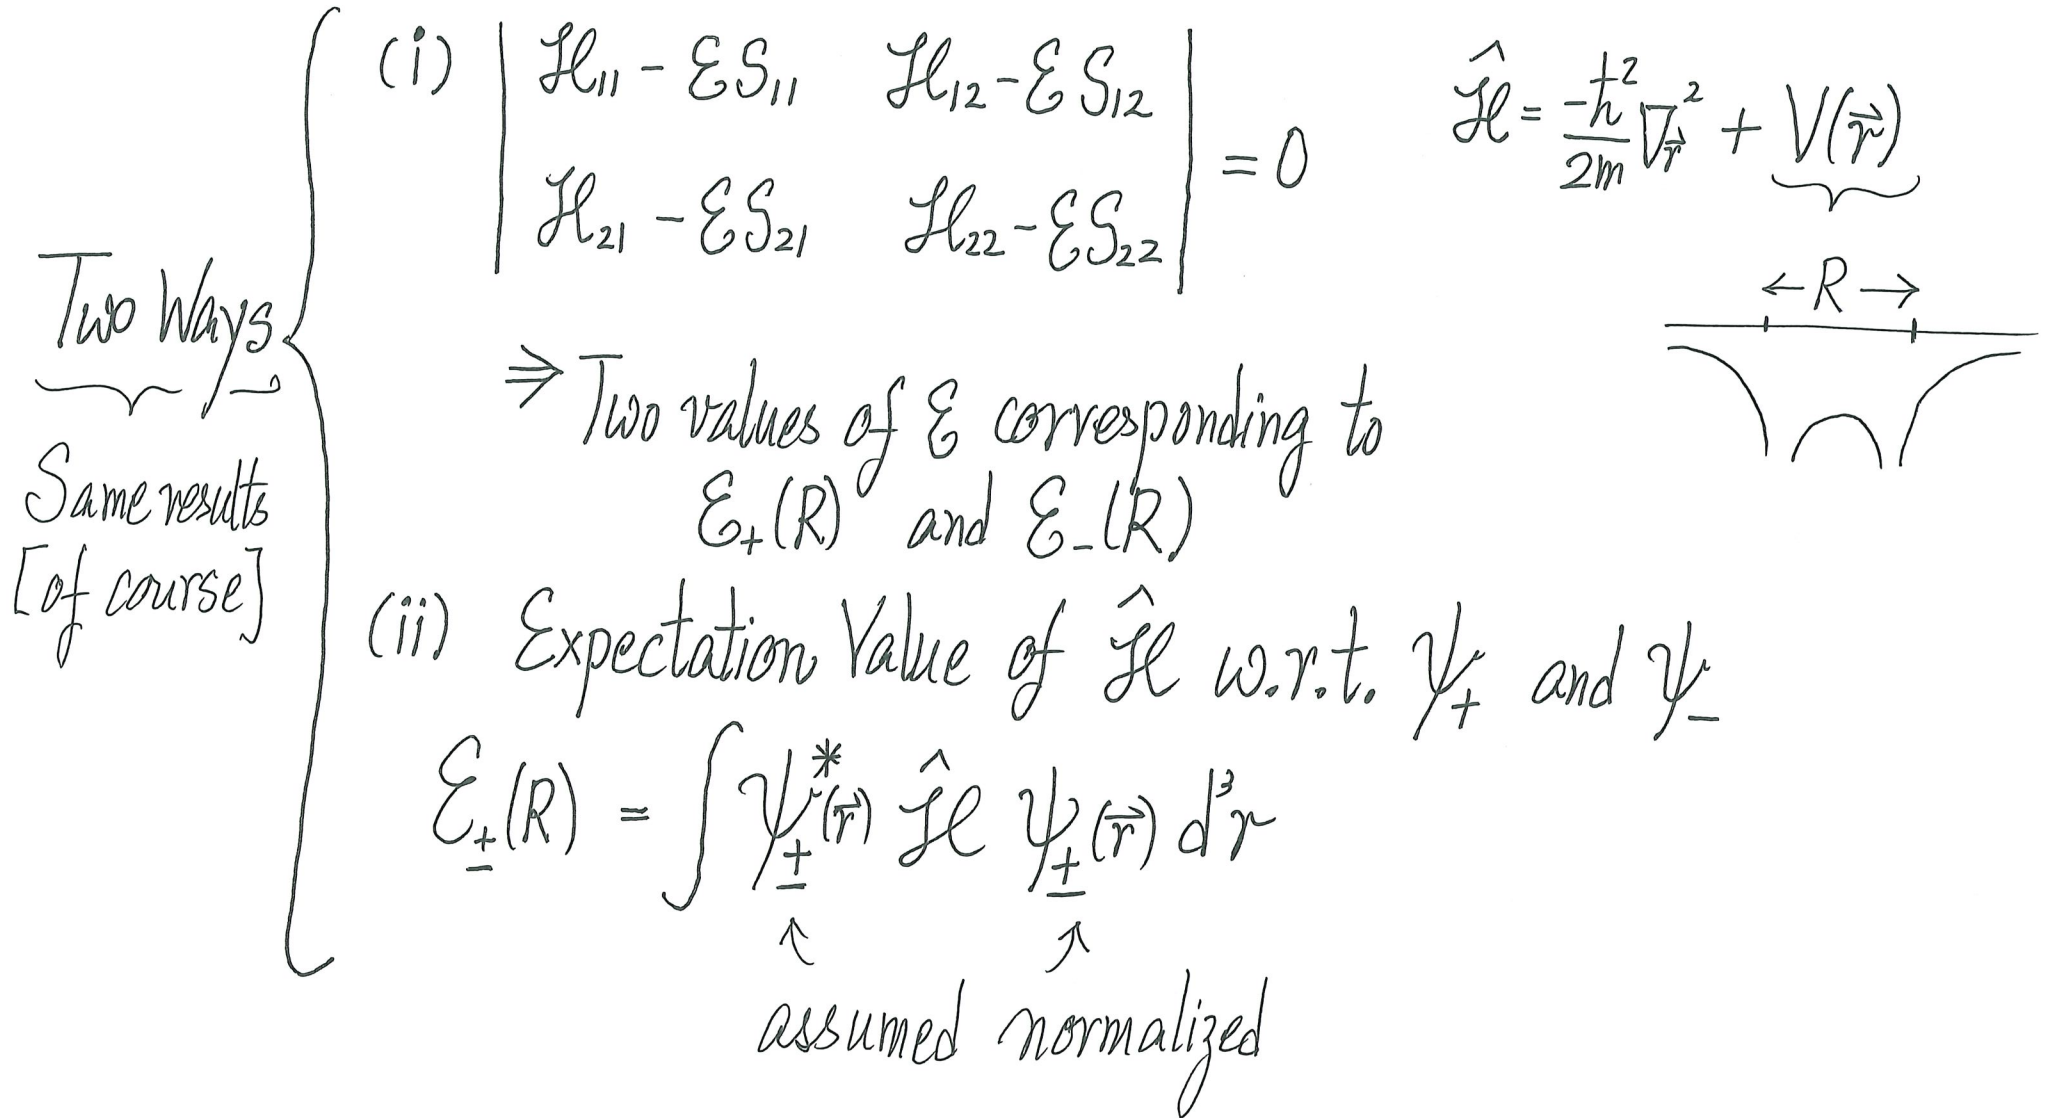 Two Ways
Same results
[of course]
(i) | ℋ₁₁ - ℰS₁₁ ℋ₁₂ - ℰS₁₂ |
| ℋ₂₁ - ℰS₂₁ ℋ₂₂ - ℰS₂₂ | = 0
ℋ̂ = -ħ²/2m ∇²_r⃗ + V(r⃗)
← R →
⇒ Two values of ℰ corresponding to
ℰ₊(R) and ℰ₋(R)
(ii) Expectation Value of ℋ̂ w.r.t. ψ₊ and ψ₋
ℰ±(R) = ∫ ψ±*(r⃗) ℋ̂ ψ±(r⃗) d³r
↑ ↑
assumed normalized